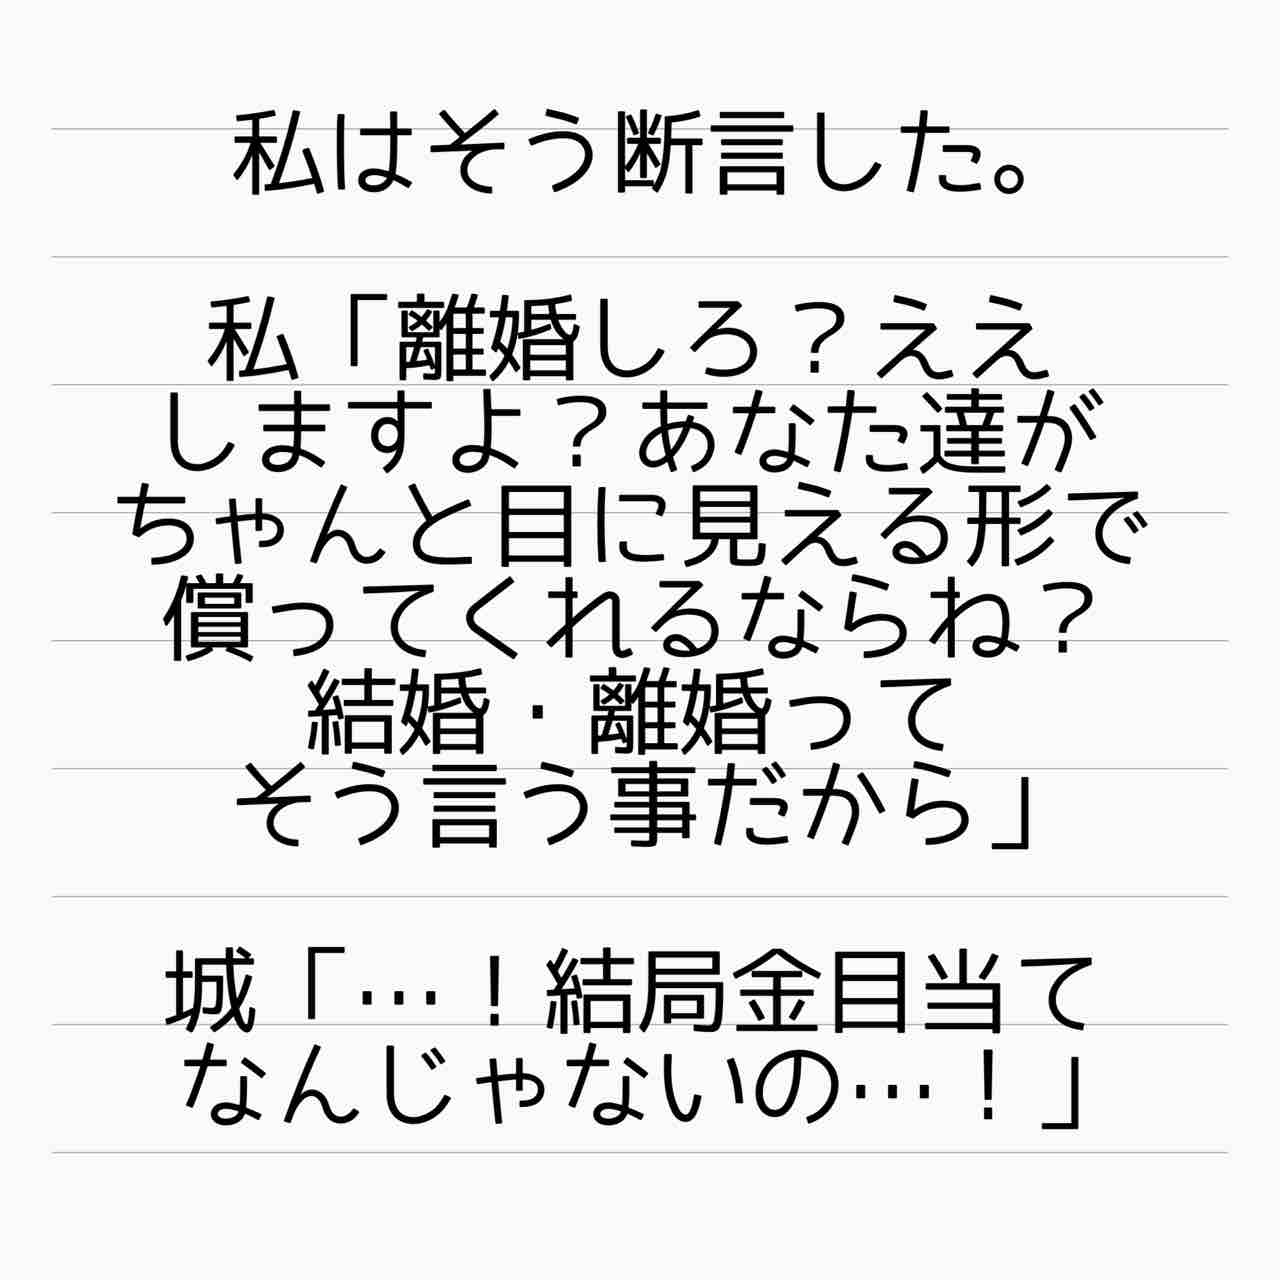 私はそう断言した。
私「離婚しろ？ええ
しますよ？あなた達が
ちゃんと目に見える形で
償ってくれるならね？
結婚・離婚って
そう言う事だから」
城「…！結局金目当て
なんじゃないの…！」